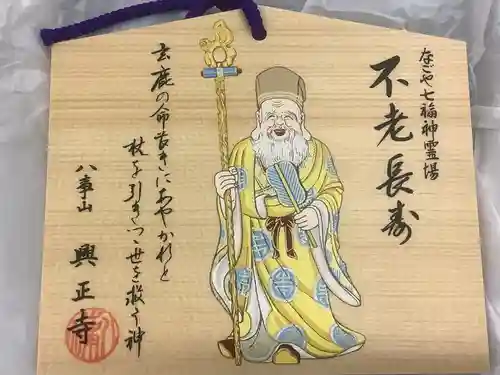 なごや七福神霊場
不老長寿
玄鹿の命長きにあやかれと
杖を引きつゝ世を救う神
八事山
興正寺